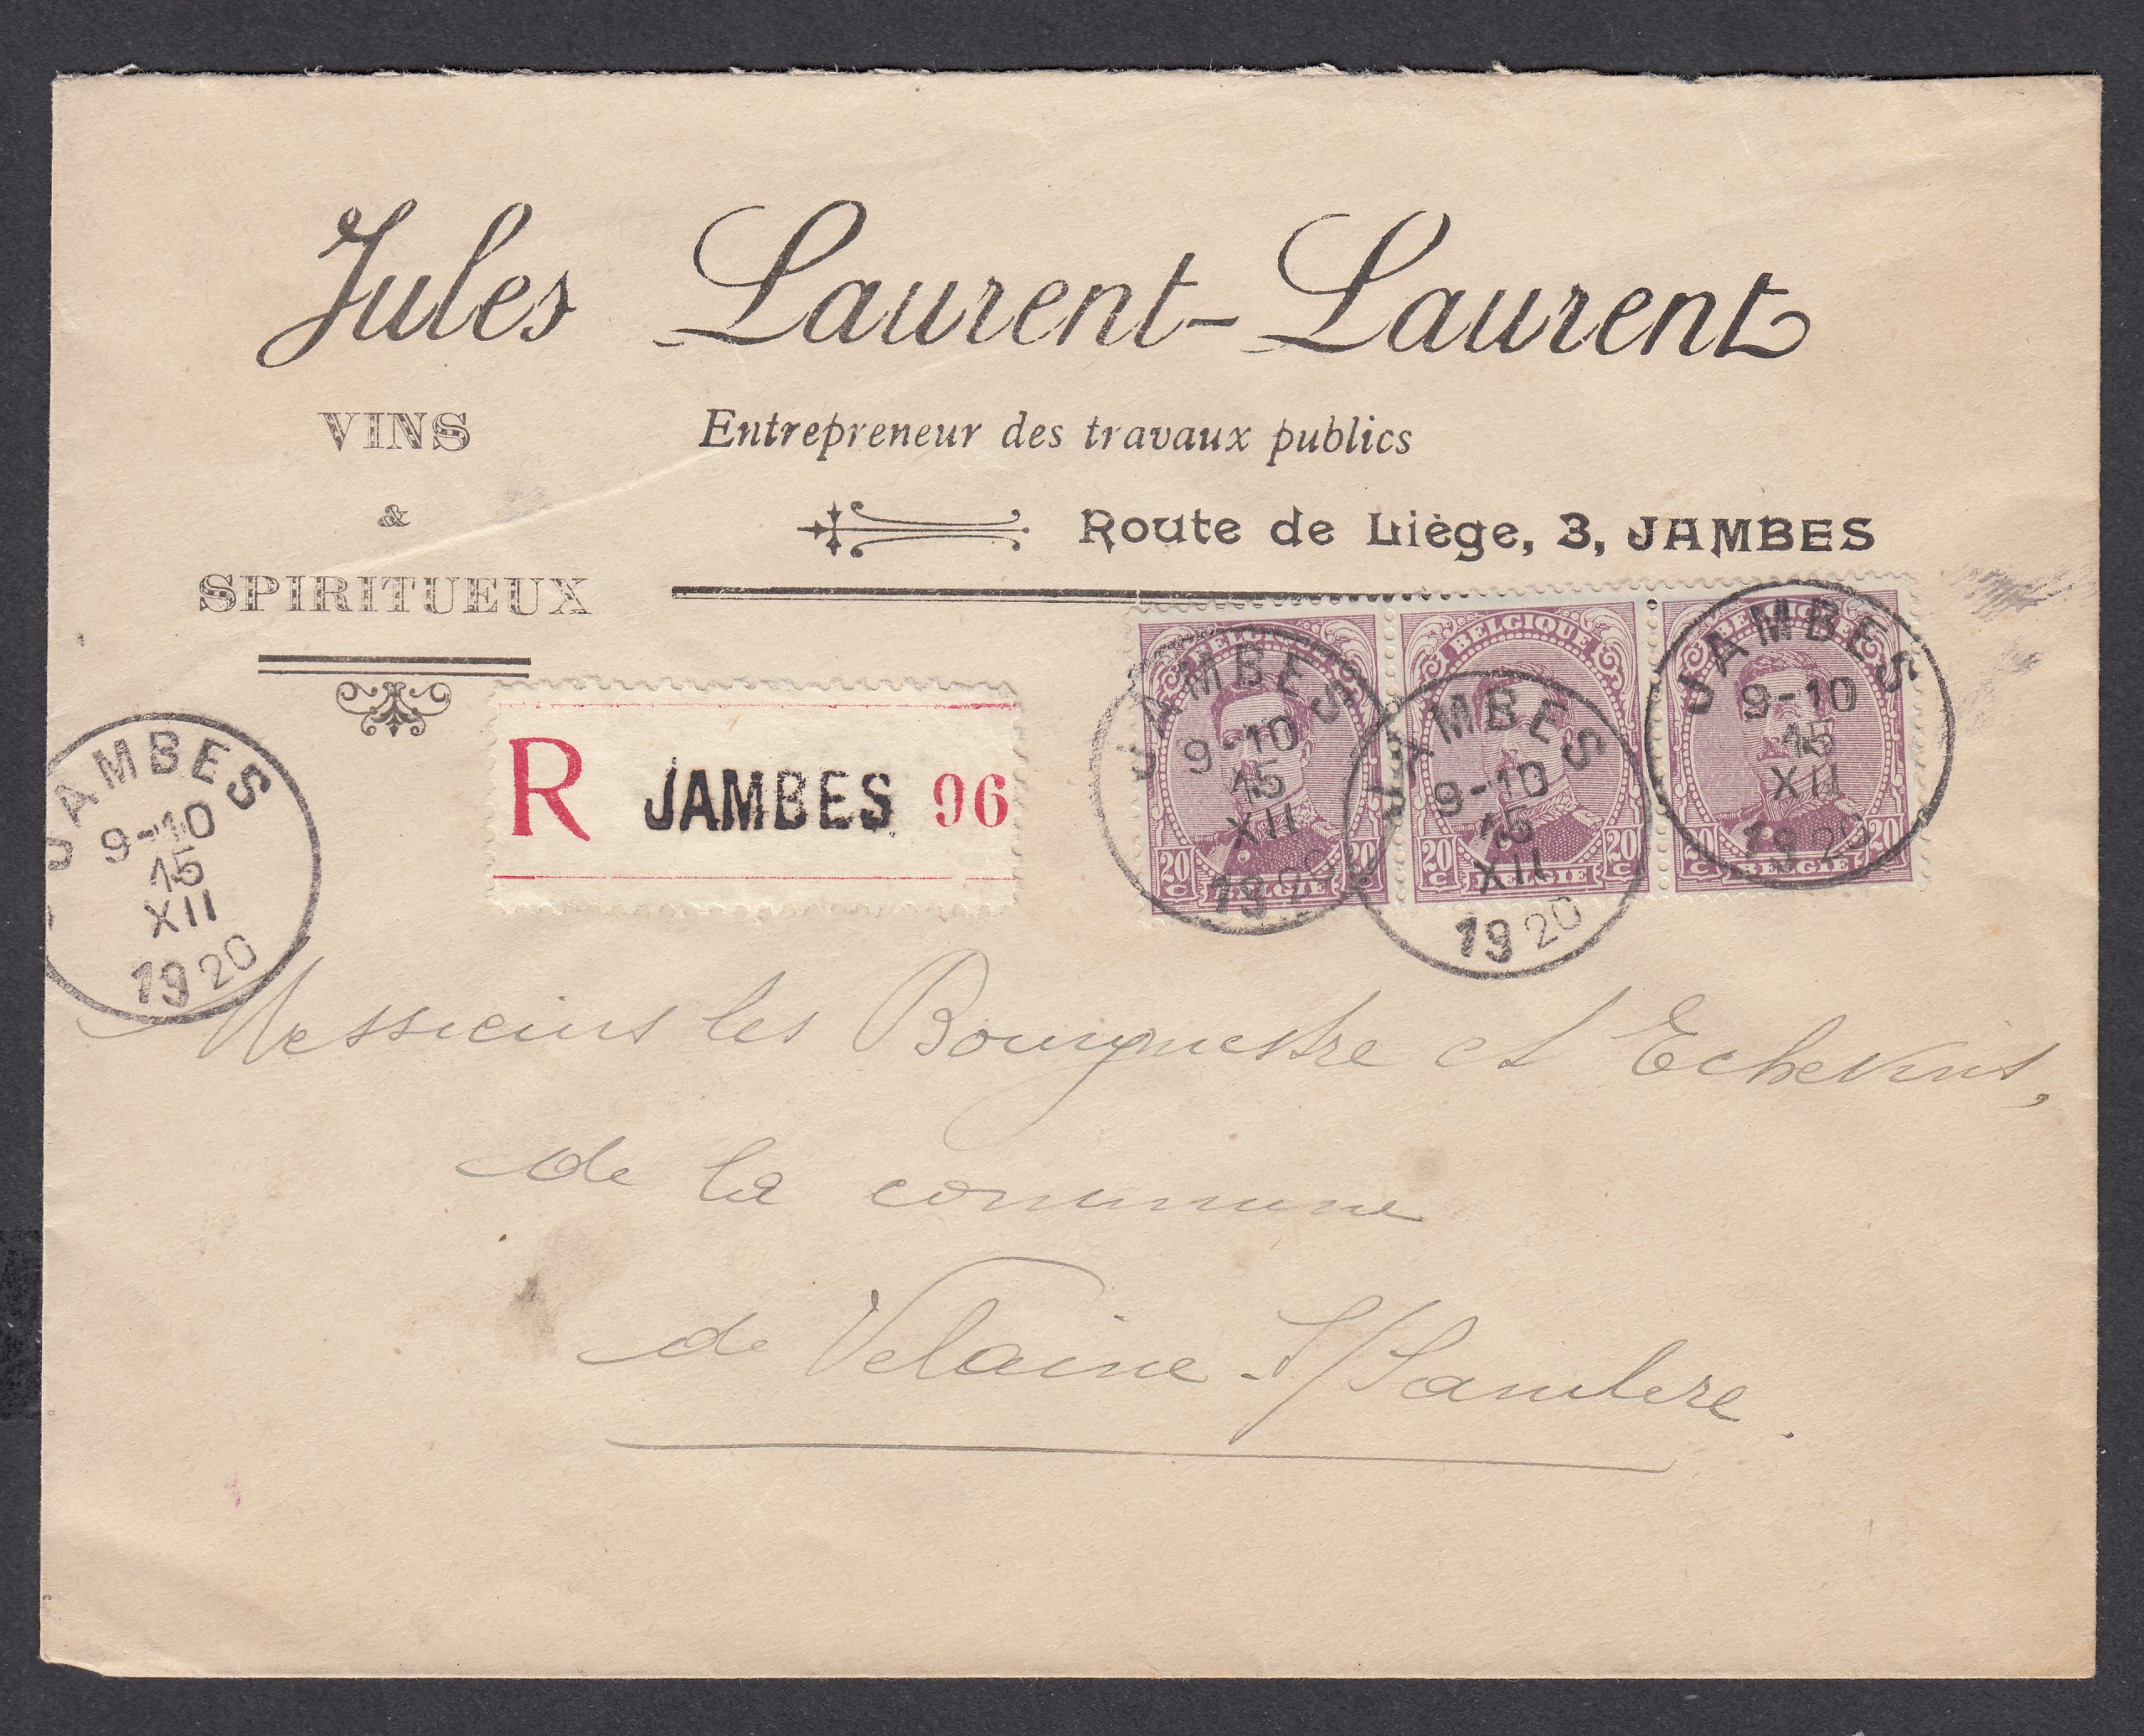 Jules Laurent-Laurent
VINS
&
SPIRITUEUX
Entrepreneur des travaux publics
Route de Liège, 3, JAMBES
R JAMBES 96
BELGIQUE
20 C BELGIE 20 C
BELGIQUE
20 C BELGIE 20 C
BELGIQUE
20 C BELGIE 20 C
JAMBES
9-10
15
XII
1920
JAMBES
9-10
15
XII
1920
JAMBES
9-10
15
XII
1920
JAMBES
9-10
15
XII
1920
Messieurs les Bourgmestre et Echevins,
de la commune
de Velaine - S/Sambre.